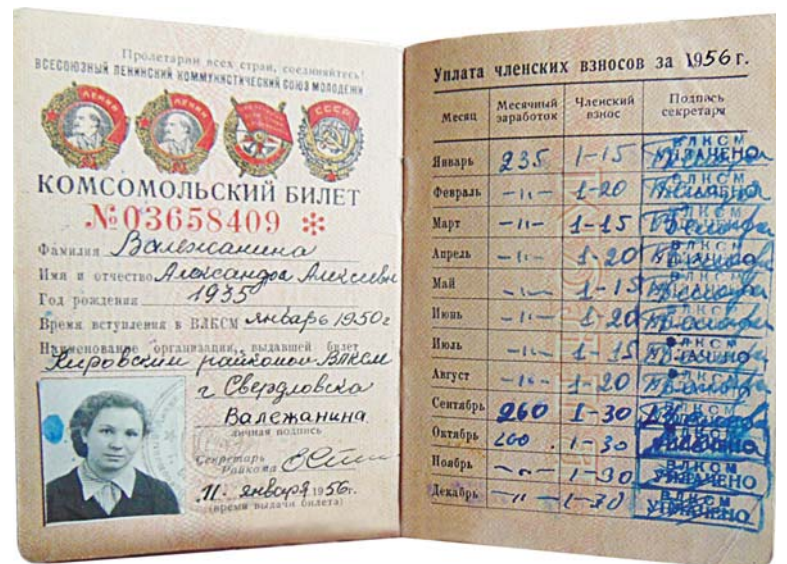 Пролетарии всех стран, соединяйтесь!
ВСЕСОЮЗНЫЙ ЛЕНИНСКИЙ КОММУНИСТИЧЕСКИЙ СОЮЗ МОЛОДЕЖИ
ЛЕНИН ЛЕНИН СССР
КОМСОМОЛЬСКИЙ БИЛЕТ
№ 03658409 *
Фамилия Валежанина
Имя и отчество Александра Алексеевн
Год рождения 1935
Время вступления в ВЛКСМ январь 1950г
Наименование организации, выдавшей билет
Кировским райкомом ВЛКСМ
г Свердловска
Валежанина
личная подпись
Секретарь
Райкома
11. января 1956г.
(время выдачи билета)
Уплата членских взносов за 1956 г.
Месяц Месячный заработок Членский взнос Подпись секретаря
Январь 235 1-15 ВЛКСМ УПЛАЧЕНО
Февраль -"- 1-20 ВЛКСМ УПЛАЧЕНО
Март -"- 1-15 ВЛКСМ
Апрель -"- 1-20 ВЛКСМ
Май -"- 1-15 ВЛКСМ
Июнь -"- 1-20 ВЛКСМ
Июль -"- 1-15 ВЛКСМ УПЛАЧЕНО
Август -"- 1-20 ВЛКСМ
Сентябрь 260 1-30 ВЛКСМ
Октябрь 260 1-30 ВЛКСМ УПЛАЧЕНО
Ноябрь -"- 1-30 ВЛКСМ УПЛАЧЕНО
Декабрь -"- 1-30 ВЛКСМ УПЛАЧЕНО